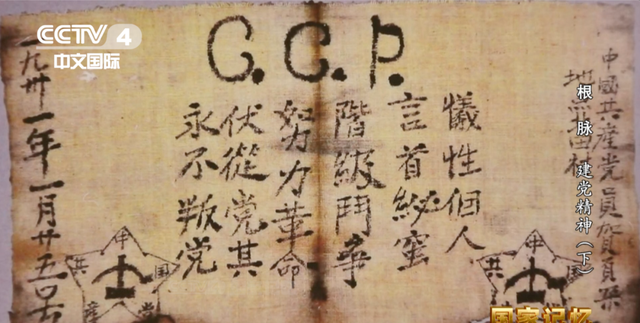 CCTV 4
中文国际
C.C.P.
中國共産党員賀頁朶
地点北田村
犧性個人
言首秘蜜
階級鬥争
努力革命
伏從党其
永不叛党
一九卅一年一月廿五
中国共産党
中国共産党
根脉 建党精神（下）
国家记忆